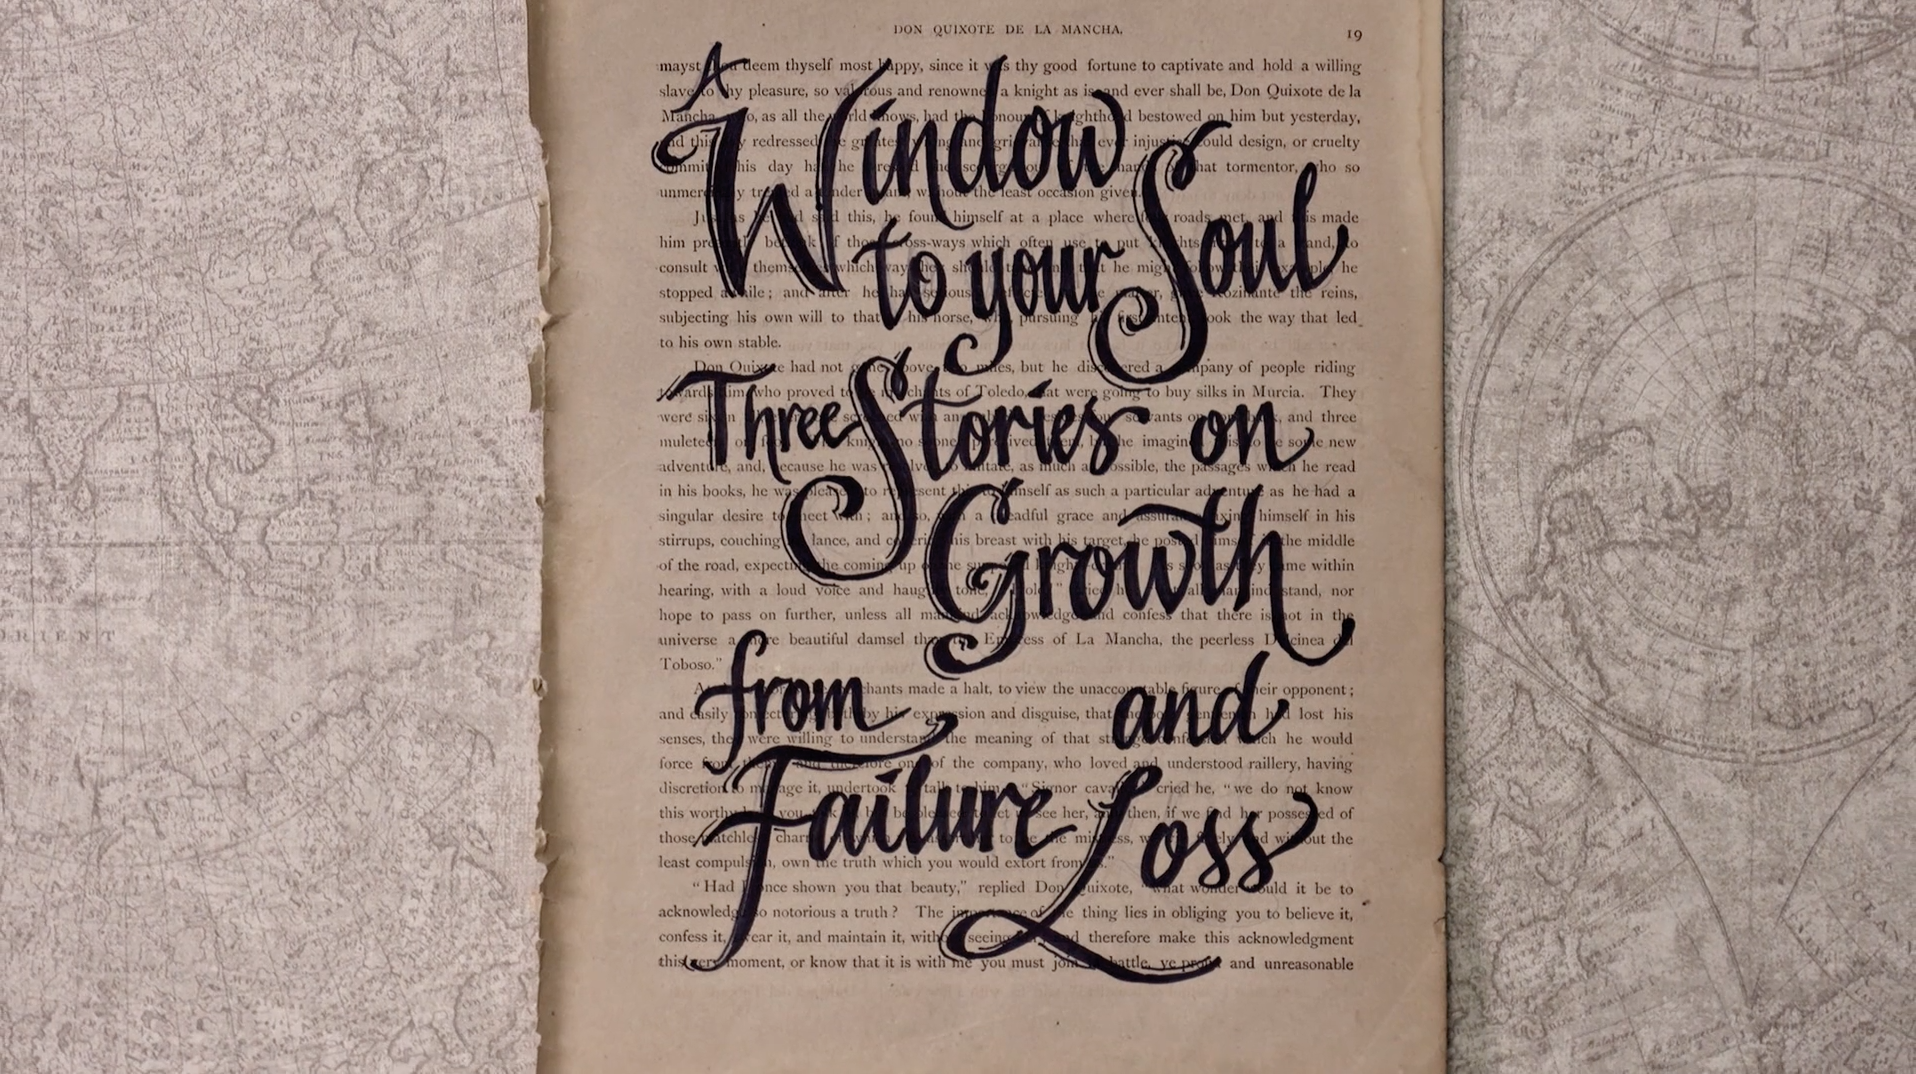 DON QUIXOTE DE LA MANCHA.
19
A
Window
to your Soul
Three Stories on
Growth
from and
Failure Loss
mayst deem thyself most happy, since it was thy good fortune to captivate and hold a willing
slave to thy pleasure, so valorous and renowned a knight as is and ever shall be, Don Quixote de la
Mancha as all the world knows, had the honour knighthood bestowed on him but yesterday,
and this redressed the greatest and ever injustice could design, or cruelty
commit this day that tormentor, who so
unmercifully a tender without the least occasion given.
Just as he had said this, he found himself at a place where four roads met, and this made
him presently of those cross-ways which often use to put to a stand, to
consult with themselves which way they should he might follow their example, he
stopped awhile; and after he had seriously gave Rozinante the reins,
subjecting his own will to that his horse, who, pursuing his first intent, took the way that led
to his own stable.
Don Quixote had not gone above two miles, but he discovered a company of people riding
towards him, who proved to merchants of Toledo, that were going to buy silks in Murcia. They
were six in servants on and three
muleteers on he imagined this to be some new
adventure, and, because he was resolved to imitate, as much as possible, the passages which he read
in his books, he was pleased to represent this to himself as such a particular adventure as he had a
singular desire to meet with; and so, a dreadful grace and assurance, fixing himself in his
stirrups, couching lance, and covering his breast with his target, he posted himself in the middle
of the road, expecting the coming up of the as soon as they came within
hearing, with a loud voice and haughty tone, cried he, mankind stand, nor
hope to pass on further, unless all mankind acknowledge and confess that there is not in the
universe a more beautiful damsel than Empress of La Mancha, the peerless Dulcinea del
Toboso."
merchants made a halt, to view the unaccountable figure of their opponent;
and easily by his expression and disguise, that had lost his
senses, they were willing to understand the meaning of that strange which he would
force from them, and therefore one of the company, who loved and understood raillery, having
discretion to manage it, undertook to talk to him. "Signor cried he, "we do not know
this worthy you be pleased to let us see her, and then, if we find her possessed of
those matchless charms, to be the mistress, we and without the
least compulsion, own the truth which you would extort from
"Had once shown you that beauty," replied Don Quixote, "what wonder would it be to
acknowledge so notorious a truth? The importance of the thing lies in obliging you to believe it,
confess it, swear it, and maintain it, without seeing and therefore make this acknowledgment
this very moment, or know that it is with me you must join battle, ye proud and unreasonable